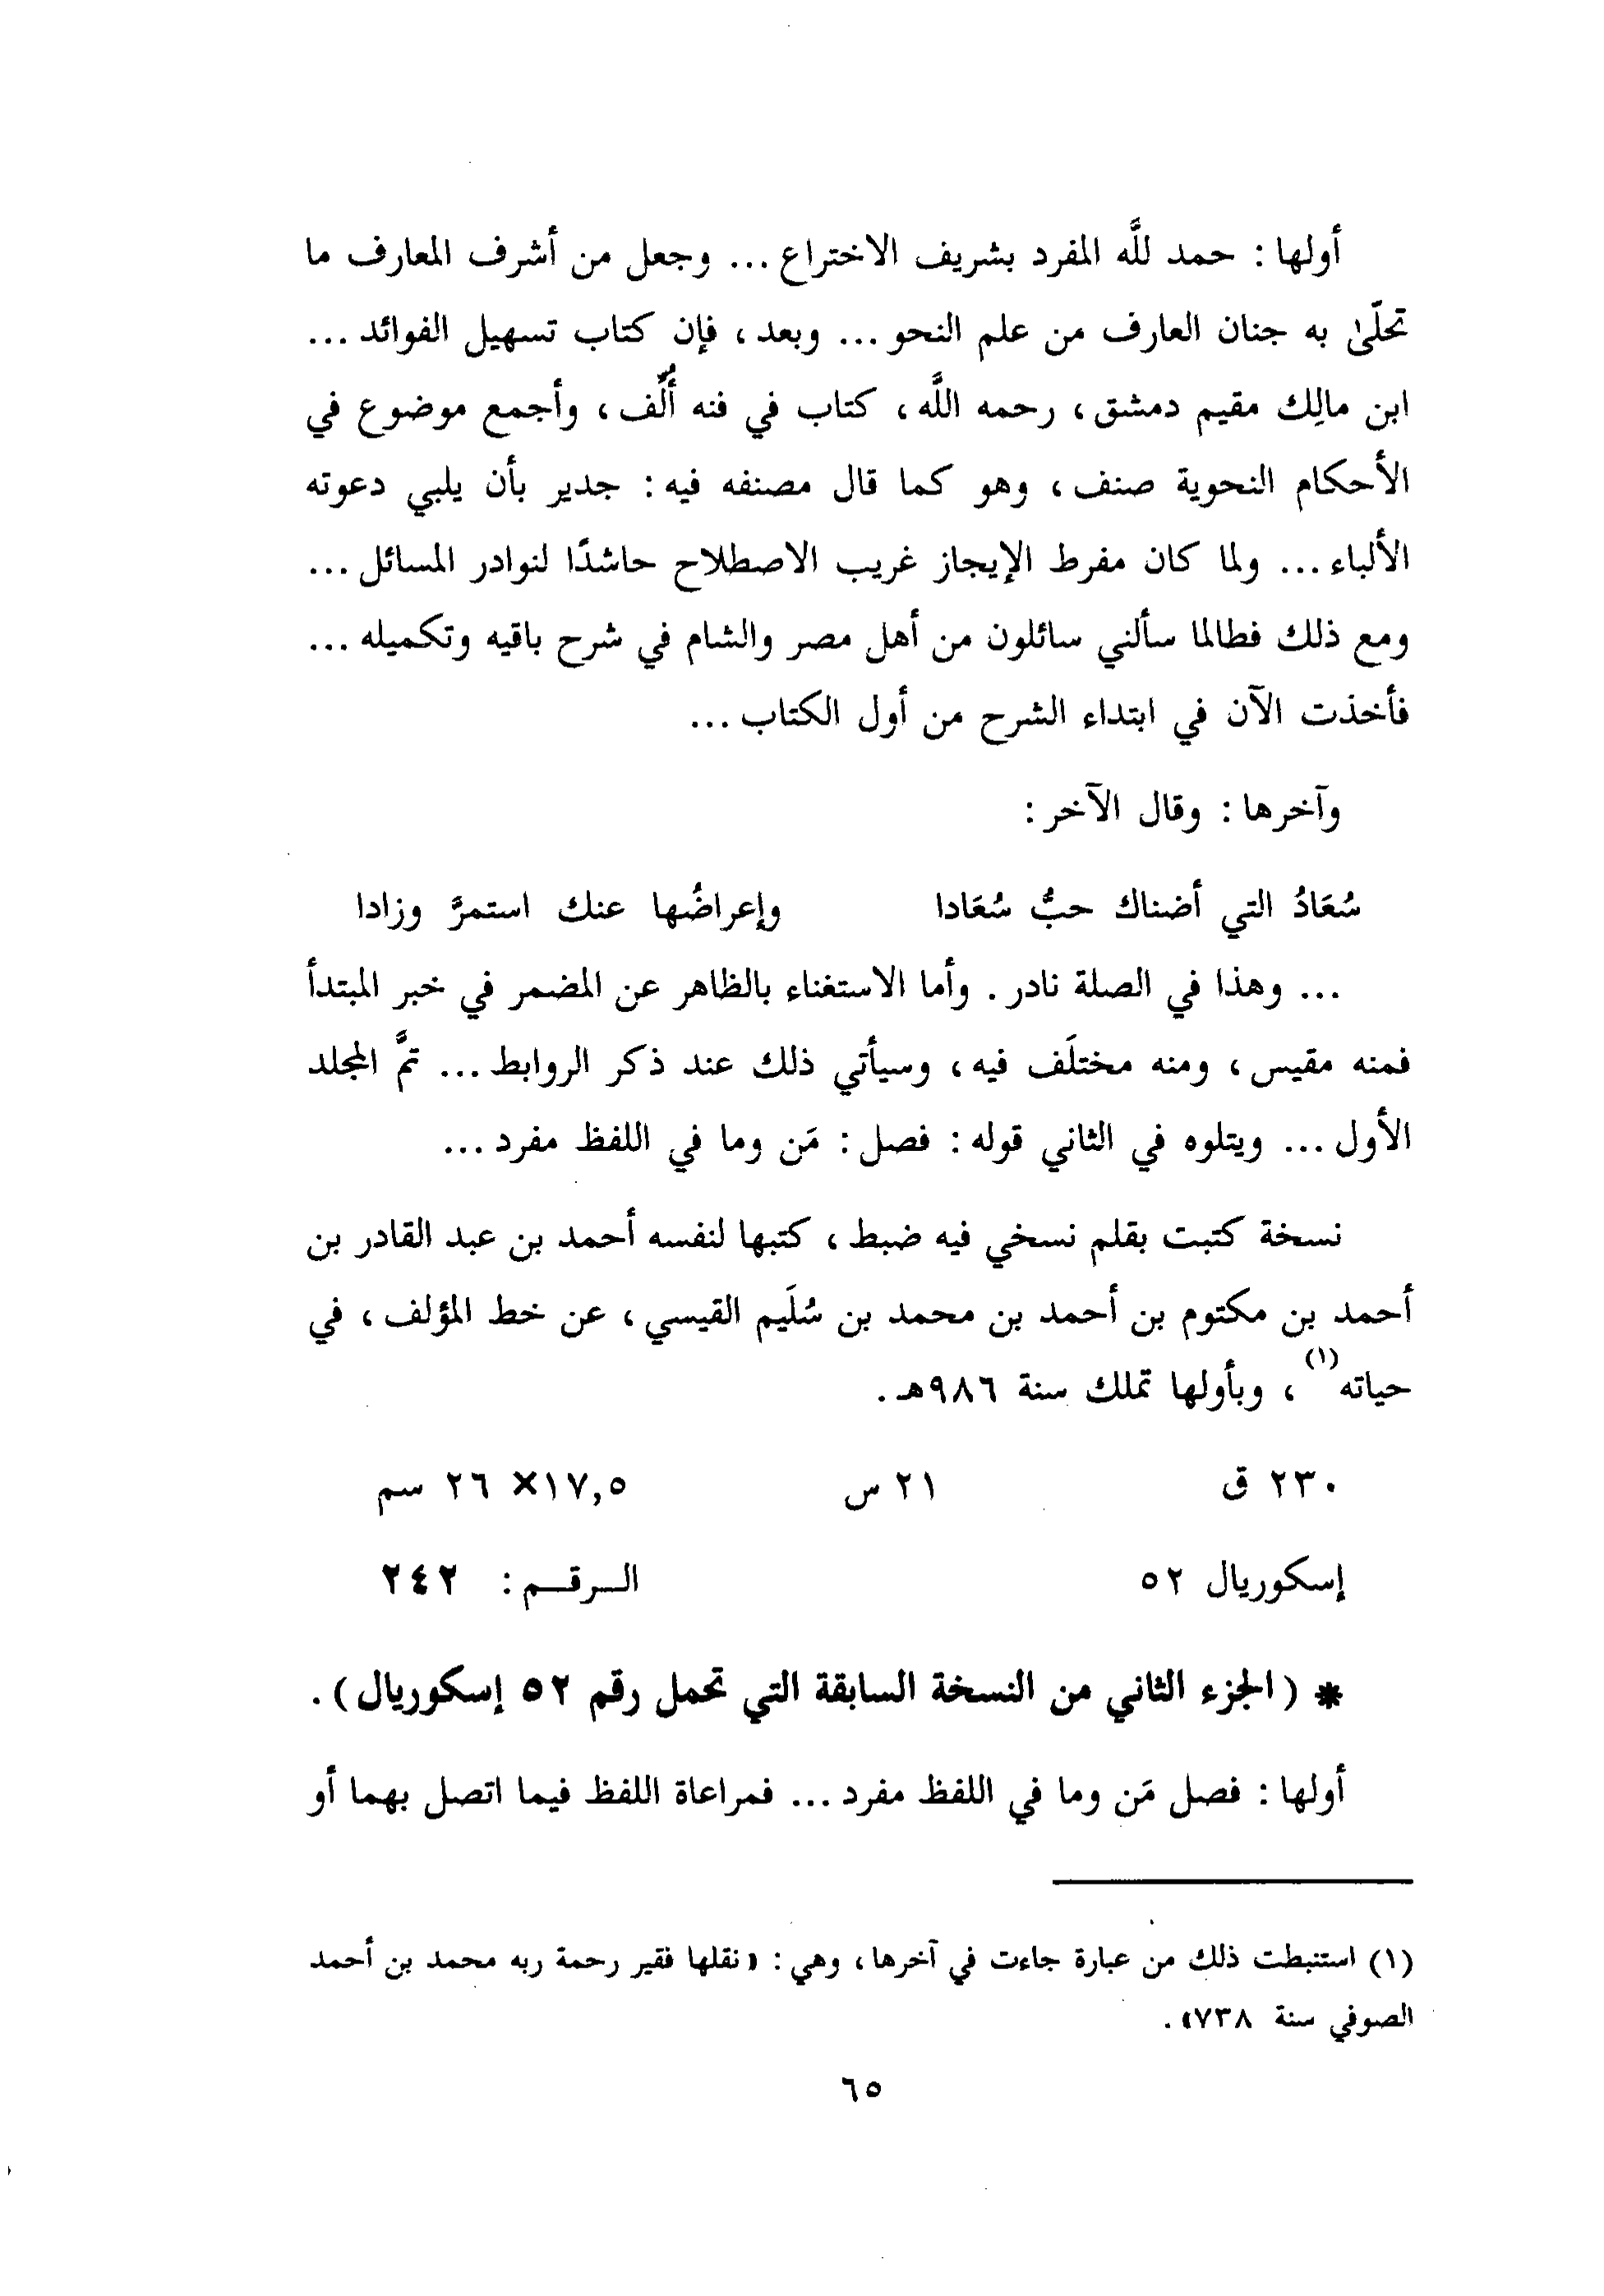 أولها : حمد للَّه المفرد بشريف الاختراع ... وجعل من أشرف المعارف ما
تحلّىٰ به جنان العارف من علم النحو ... وبعد ، فإن كتاب تسهيل الفوائد ...
ابن مالِك مقيم دمشق ، رحمه اللَّه ، كتاب في فنه أُلِّف ، وأجمع موضوع في
الأحكام النحوية صنف ، وهو كما قال مصنفه فيه : جدير بأن يلبي دعوته
الألباء ... ولما كان مفرط الإيجاز غريب الاصطلاح حاشدًا لنوادر المسائل ...
ومع ذلك فطالما سألني سائلون من أهل مصر والشام في شرح باقيه وتكميله ...
فأخذت الآن في ابتداء الشرح من أول الكتاب ...
وآخرها : وقال الآخر :
سُعَادُ التي أضناك حبُّ سُعَادا وإعراضُها عنك استمرَّ وزادا
... وهذا في الصلة نادر . وأما الاستغناء بالظاهر عن المضمر في خبر المبتدأ
فمنه مقيس ، ومنه مختلَف فيه ، وسيأتي ذلك عند ذكر الروابط ... تمَّ المجلد
الأول ... ويتلوه في الثاني قوله : فصل : مَن وما في اللفظ مفرد ...
نسخة كتبت بقلم نسخي فيه ضبط ، كتبها لنفسه أحمد بن عبد القادر بن
أحمد بن مكتوم بن أحمد بن محمد بن سُلَيم القيسي ، عن خط المؤلف ، في
حياته (١) ، وبأولها تملك سنة ٩٨٦هـ .
٢٣٠ ق ٢١ س ١٧,٥× ٢٦ سم
إسكوريال ٥٢ الـرقـم : ٢٤٢
* ( الجزء الثاني من النسخة السابقة التي تحمل رقم ٥٢ إسكوريال ) .
أولها : فصل مَن وما في اللفظ مفرد ... فمراعاة اللفظ فيما اتصل بهما أو
(١) استنبطت ذلك من عبارة جاءت في آخرها ، وهي : « نقلها فقير رحمة ربه محمد بن أحمد
الصوفي سنة ٧٣٨» .
٦٥